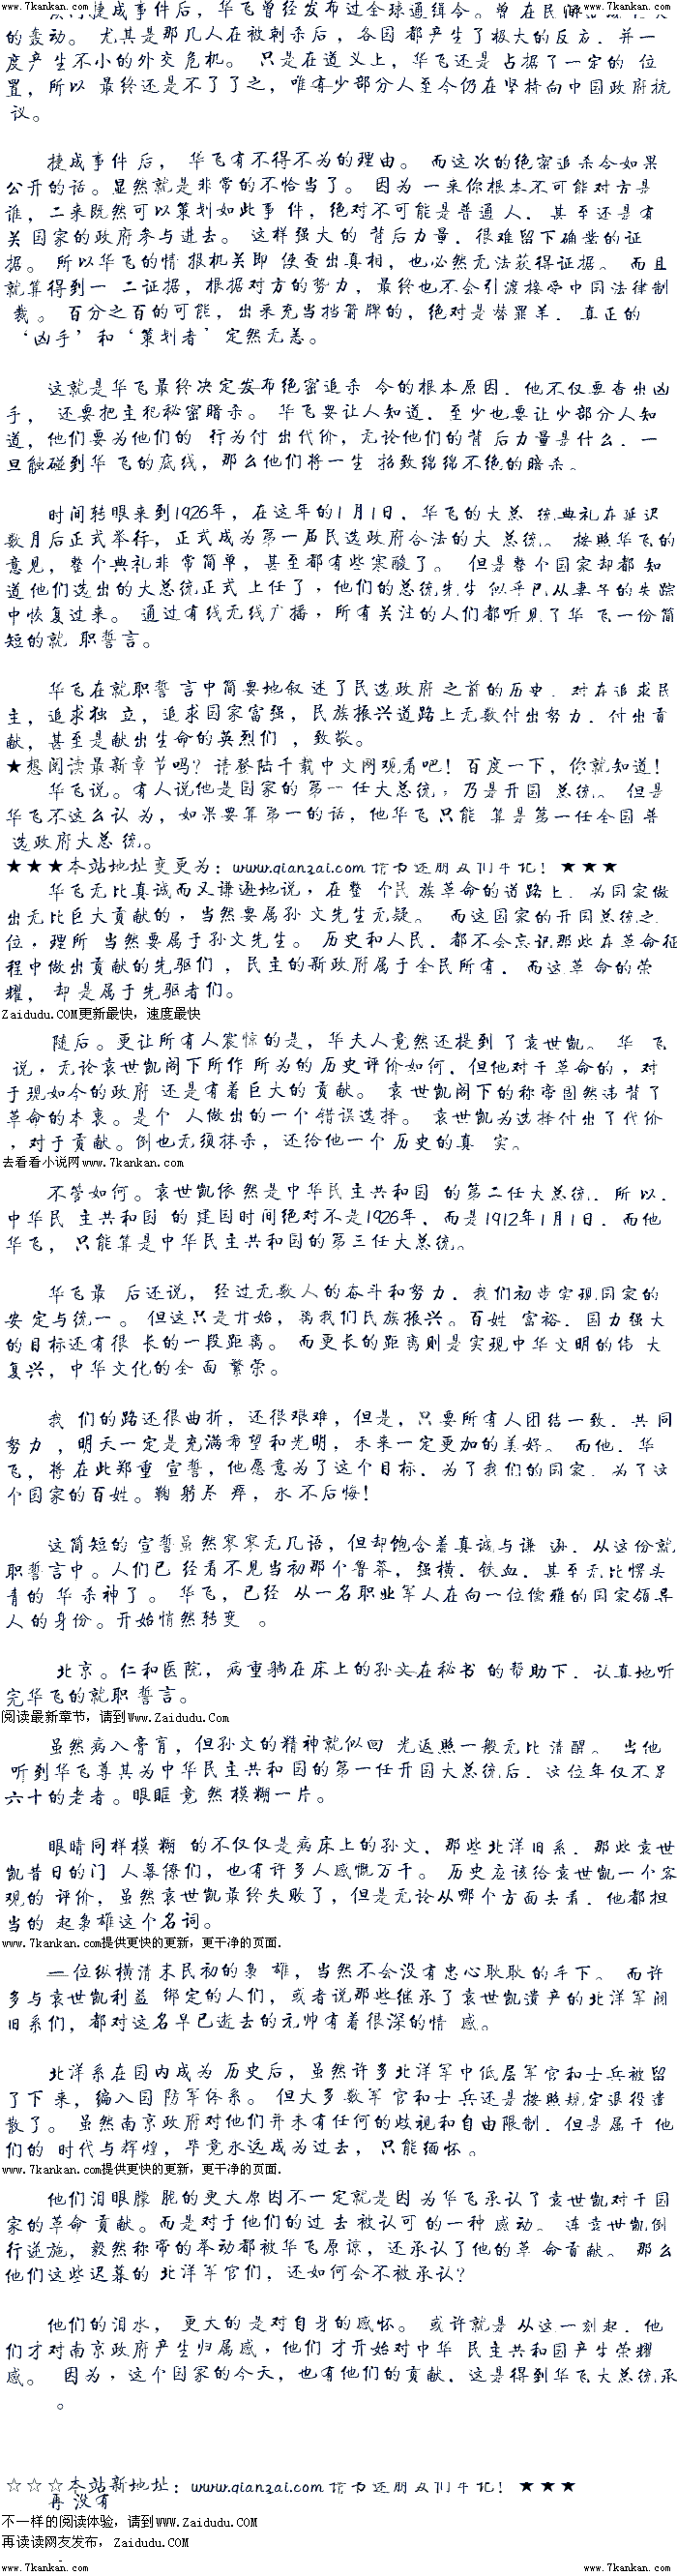 www.7kankan.com www.7kankan.com
捷成事件后，华飞曾经发布过全球通缉令。曾 在民
的轰动。 尤其是那几人在被刺杀后，各国 都产生了极大的反应．并一
度产 生不小的外交 危机。 只是在道 义上，华飞还是 占据了一定的 位
置，所以 最终还是不了了之，唯有少部分人至今仍在坚持向中国政府抗
议。
捷成事件 后， 华飞有不得不为的理由。 而这次的绝密追 杀令如果
公开的话。显然就是非常的不恰当了。 因为 一来你根本不可能对方是
谁，二来既然可以策划如此事 件，绝对不可能是普通 人．甚 至还是有
关 国家的政府参与进去。 这样强大的 背后力量．很难留下确凿的证
据。 所以华飞的情 报机关即 便查出真相，也必然无法获得证据。 而且
就算得到一 二证据，根据对方的势力，最终也不会引渡接受中国法律制
裁。 百分之百的可能，出来充当挡箭牌的，绝对是替罪羊．真正的
‘凶手’和‘策划者’定然无恙。
这就是华飞最终决定发布绝密追杀 令的根本原因．他不仅要查出凶
手， 还要把主犯秘密暗杀。 华飞要让人知道．至少也要让少部分人知
道，他们要为他们的 行为付 出代价，无论他们的背 后力量是什么．一
旦触碰到华 飞的底线，那么他们将一生 招致绵绵不绝的暗杀。
时间转眼来到1926年，在这年的1月1日．华飞的大总 统典礼在延迟
数月后正式举行，正式成为第一届民选政府合法的大 总统。 按照华飞的
意见，整个典礼非 常简单，甚至都有些寒酸了。 但是整个国家却都 知
道他们选出的大总统正式 上任了，他们的总统先生 似乎已从妻子的失踪
中恢复过来。 通过有线无线广播，所有关注的人们都听见了华 飞一份简
短的就 职誓言。
华飞在就职誓 言中简要地叙 述了民选政府 之前的历史．对在追求民
主，追求独 立，追求国家富强，民族振兴道路上无数付出努力．付出贡
献，甚至是献出生命的英烈们 ，致敬。
★想阅读最新章节吗？请登陆千载中文网观看吧！百度一下，你就知道！
华飞说。有人说他是国家的第一 任大总统，乃是开国 总统。 但是
华飞不这么认 为，如果要算第一的话，他华飞只能 算是第一任全国 普
选政府大总 统。
★★★本站地址变更为：www.qianzai.com 请书迷朋友们牢记！★★★
华飞无比真诚而又谦逊地说，在整 个民 族革命的道路上．为国家做
出无比巨大贡献的，当然要属孙 文先生无疑。 而这国家的开国总统之
位，理所 当然要属于孙文先生。 历史和人民．都不会忘记那些在革命征
程中做出贡献的先驱们 ，民主的新政府属于全民所有．而这革 命的荣
耀， 却是属于先驱者们。
Zaidudu.COM更新最快，速度最快
随后。更让所有人震惊的是，华夫人竟然还提到 了袁世凯。 华 飞
说，无论袁世凯阁下所作 所为的历史评价如何．但他对于革命的，对
于现如今的政府 还是有着巨大的 贡献。 袁世凯阁下的称帝固然违 背了
革命的本衷。是个 人做出的一个错误选择。 袁世凯为选择付出了代价
，对于贡献。倒也无须抹杀，还给他一个 历史的真 实。
去看看小说网www.7kankan.com
不管如何。袁世凯依 然是中华民主共和国 的第二任大总统．所以．
中华民 主共和国 的 建国时间绝对不是1926年．而是1912年1月1日．而他
华飞，只能算是中华民主共和国的第三任大总统。
华飞最 后还说， 经过无数人的奋斗和努力．我们初步实现国家的
安 定与统一。 但这只是开始，离我们民族振兴。百姓 富裕．国力强大
的目标还有很 长的一段距离。 而更长的距离则是实现中华文明的伟 大
复兴，中华文化的全 面 繁荣。
我 们的路还很曲折，还很艰难，但是，只要所有人团结一致．共同
努力 ，明天一定是充满希望和光明，未来一定更加的美好。 而他．华
飞，将在此郑重 宣誓，他愿意为了这个目标．为了我们的国家．为了这
个国家的百姓。鞠躬尽 瘁，永不后悔！
这简短的 宣誓虽然寥寥无几语，但却饱含着真诚与谦 逊．从这份就
职誓言中。人们已 经看不见当初那个鲁莽，强横．铁血．甚至无比愣头
青的 华杀神了。 华飞，已经 从一名职业军人在向一位儒雅的国家领导
人的身份。开始悄然转变 。
北京。仁和医院，病重躺在床上的孙文在秘书 的帮助下．认真地听
完华飞的就职 誓言。
阅读最新章节，请到Www.Zaidudu.Com
虽然病入膏肓，但孙文的精神就似回 光返照一般无比 清醒。 当他
听到华飞尊其为中华民主共和 国的第一任开国大总统后．这位年仅不足
六十的老者。眼眶竟 然模糊一片。
眼睛同样模 糊 的不仅仅是病床上的孙文．那些北洋旧系．那些袁世
凯昔日的门 人幕僚们，也有许多人感慨万千。 历史应该给袁世凯一个客
观的 评价，虽然袁世凯最终失败了，但是无论从哪个方面去看．他都担
当的 起枭雄这个名词。
www.7kankan.com提供更快的更新，更干净的页面.
一位纵横清末民初的枭 雄，当然不会没有忠心耿耿 的手下。 而许
多与袁世凯利益 绑定的人们，或者说那些继承了袁世凯遗产的北洋军阀
旧系们，都对这名早已逝去的元帅有着很深的情 感。
北洋系在国内成为 历史后，虽然许多北洋军中低层军官和士兵被留
了下来，编入国 防军体系。 但大多数军 官和士 兵还是按照规定退役遣
散了。 虽然南京政府对他们并未有任何的歧视和自由限制．但是属于 他
们的 时代与辉煌，毕竟永远成为过去，只能缅怀。
www.7kankan.com提供更快的更新，更干净的页面.
他们泪眼朦 胧的更大原因不一定就是因 为华飞承认了袁世凯对于国
家的革命 贡献。而是对于他们的过 去 被认可 的一种 感动。 连袁世凯倒
行逆施，毅然称帝的举动都被华飞原谅，还承认了他的革 命贡献。 那么
他们这些迟暮的 北洋军官们，还如何会不被承认？
他们的泪水， 更大的是对自身的感怀。 或许就是 从这一刻起．他
们才对南京政府产生归属感，他们 才开始对中华 民主共和国产生荣耀
感。 因为，这个国家的今天，也有他们的贡献．这是得到华飞大总统承
。
☆☆☆本站新地址：www.qianzai.com 请书迷朋友们牢记！★★★
再没有
不一样的阅读体验，请到www.Zaidudu.COM
再读读网友发布，Zaidudu.COM
www.7kankan.com www.7kankan.com